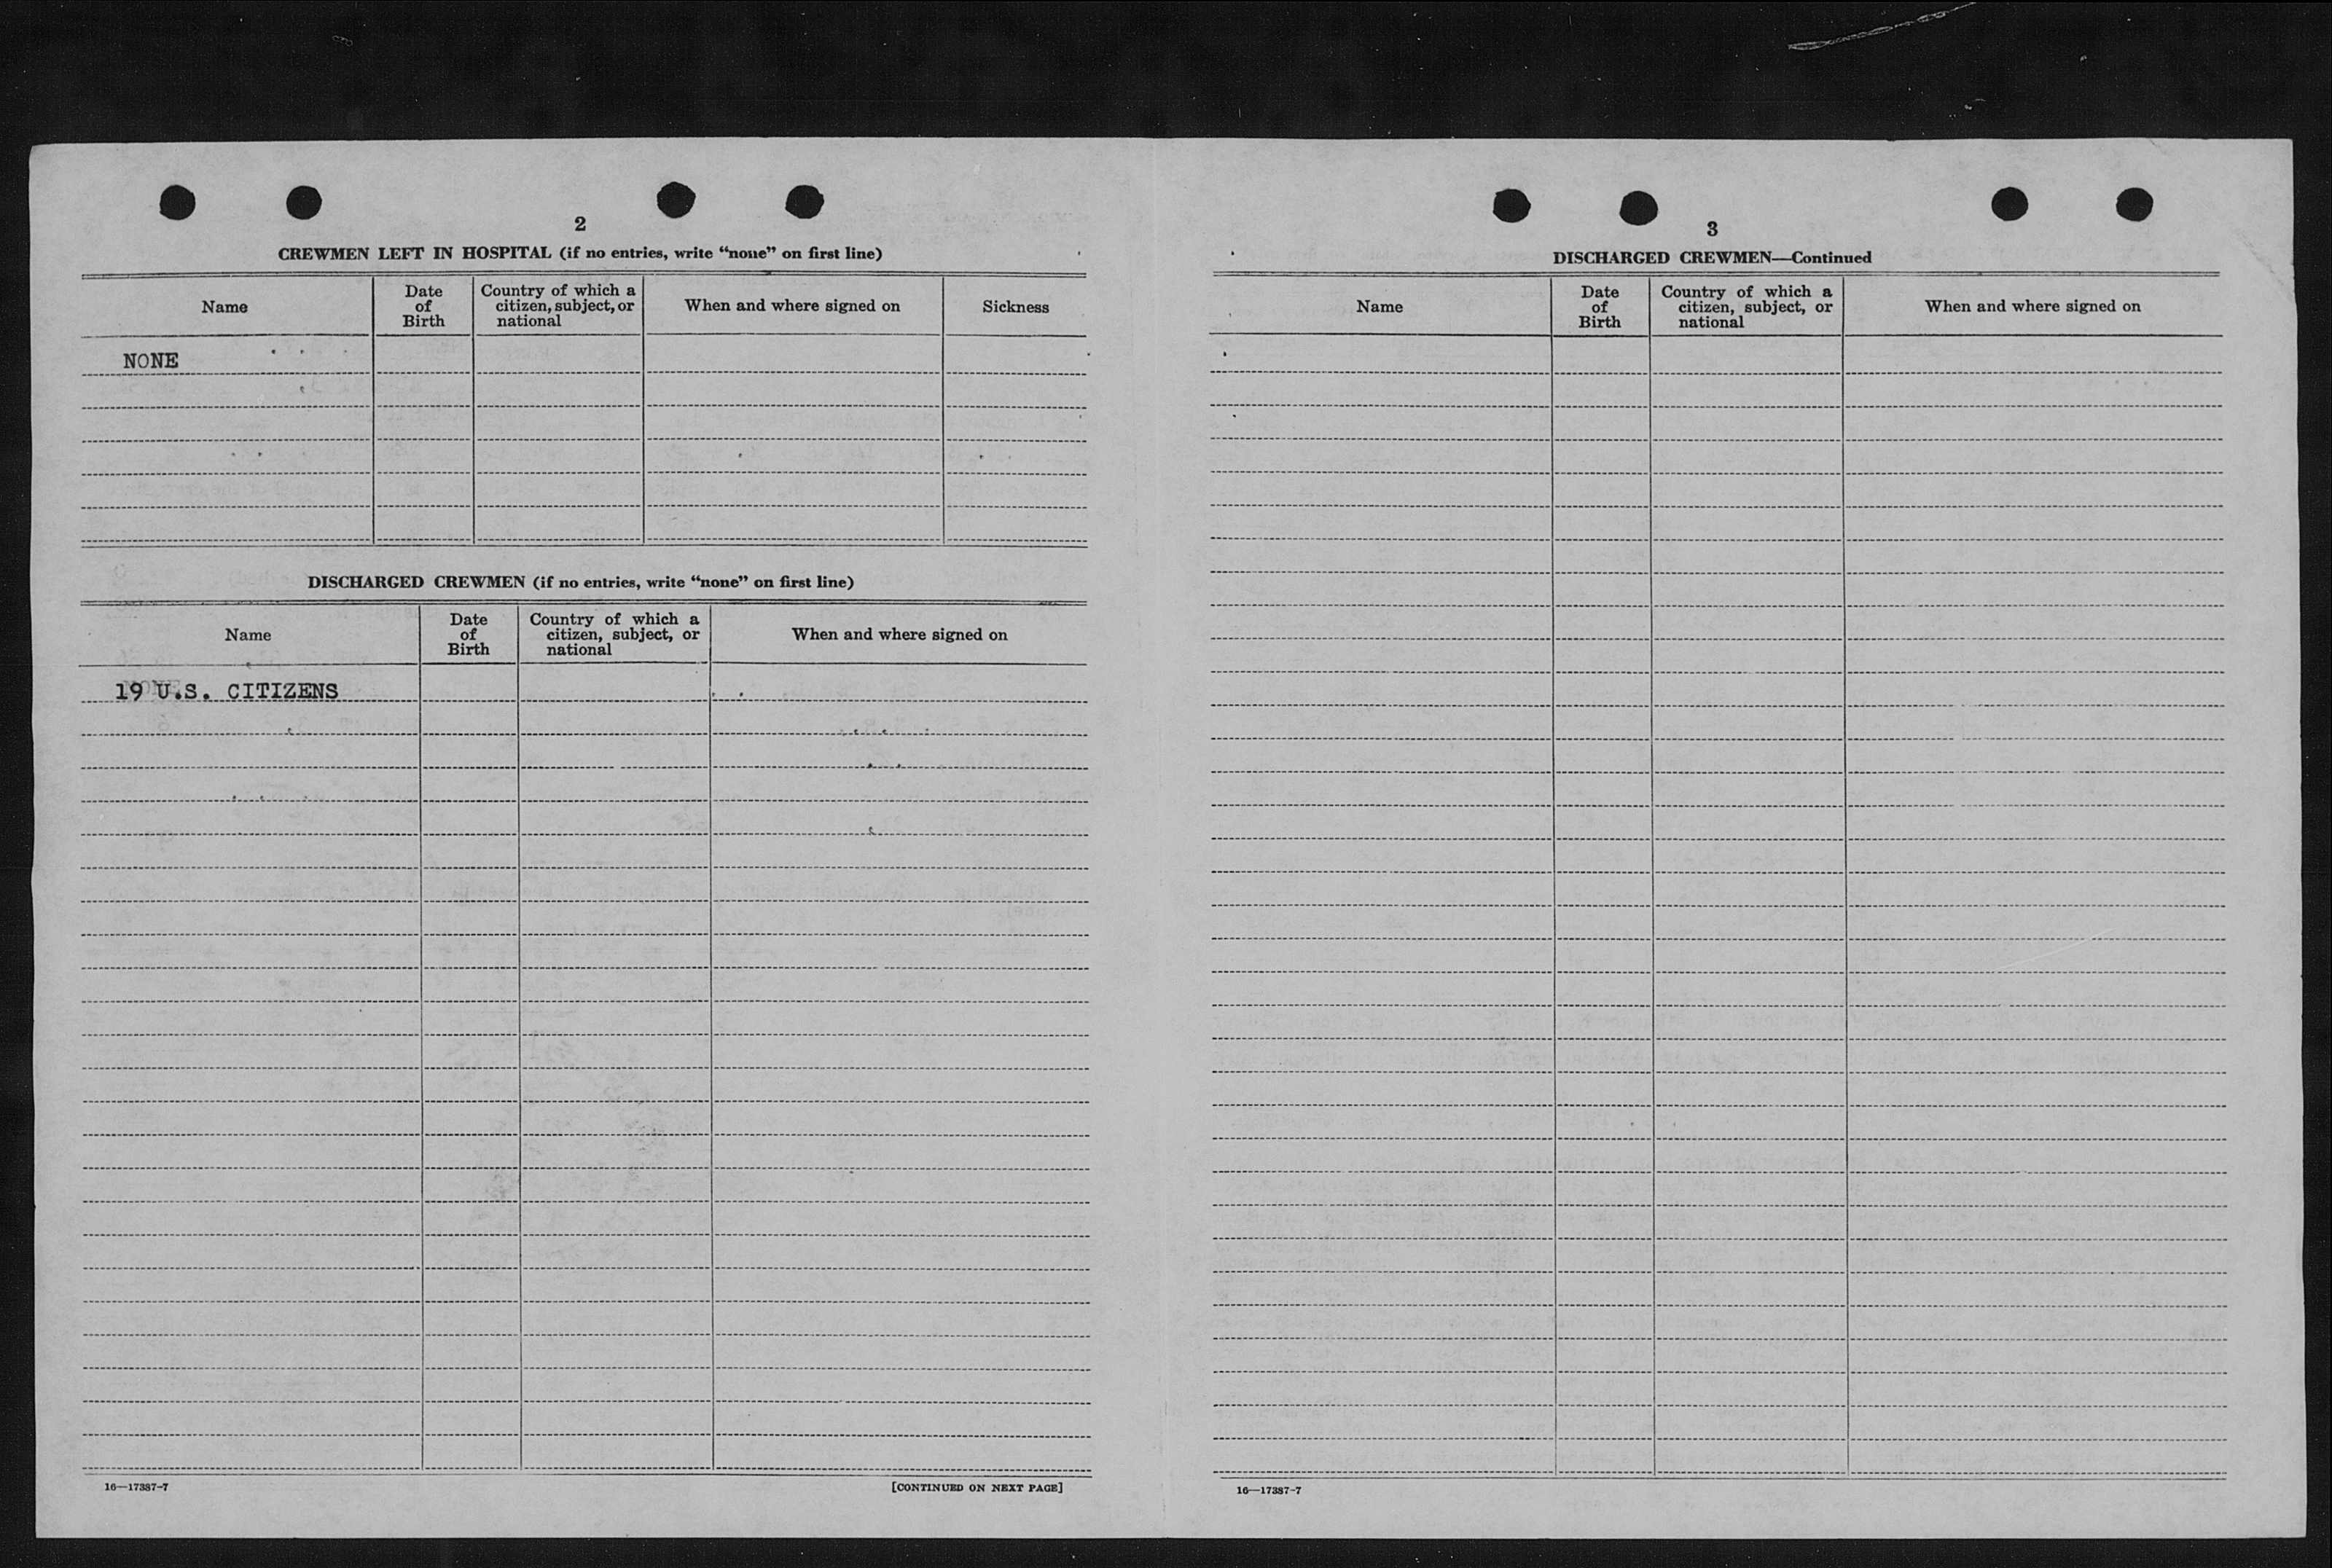 2
CREWMEN LEFT IN HOSPITAL (if no entries, write “none” on first line)
Name
Date of Birth
Country of which a citizen, subject, or national
When and where signed on
Sickness
NONE
DISCHARGED CREWMEN (if no entries, write “none” on first line)
Name
Date of Birth
Country of which a citizen, subject, or national
When and where signed on
19 U.S. CITIZENS
16—17387-7
[CONTINUED ON NEXT PAGE]
3
DISCHARGED CREWMEN—Continued
Name
Date of Birth
Country of which a citizen, subject, or national
When and where signed on
16—17387-7